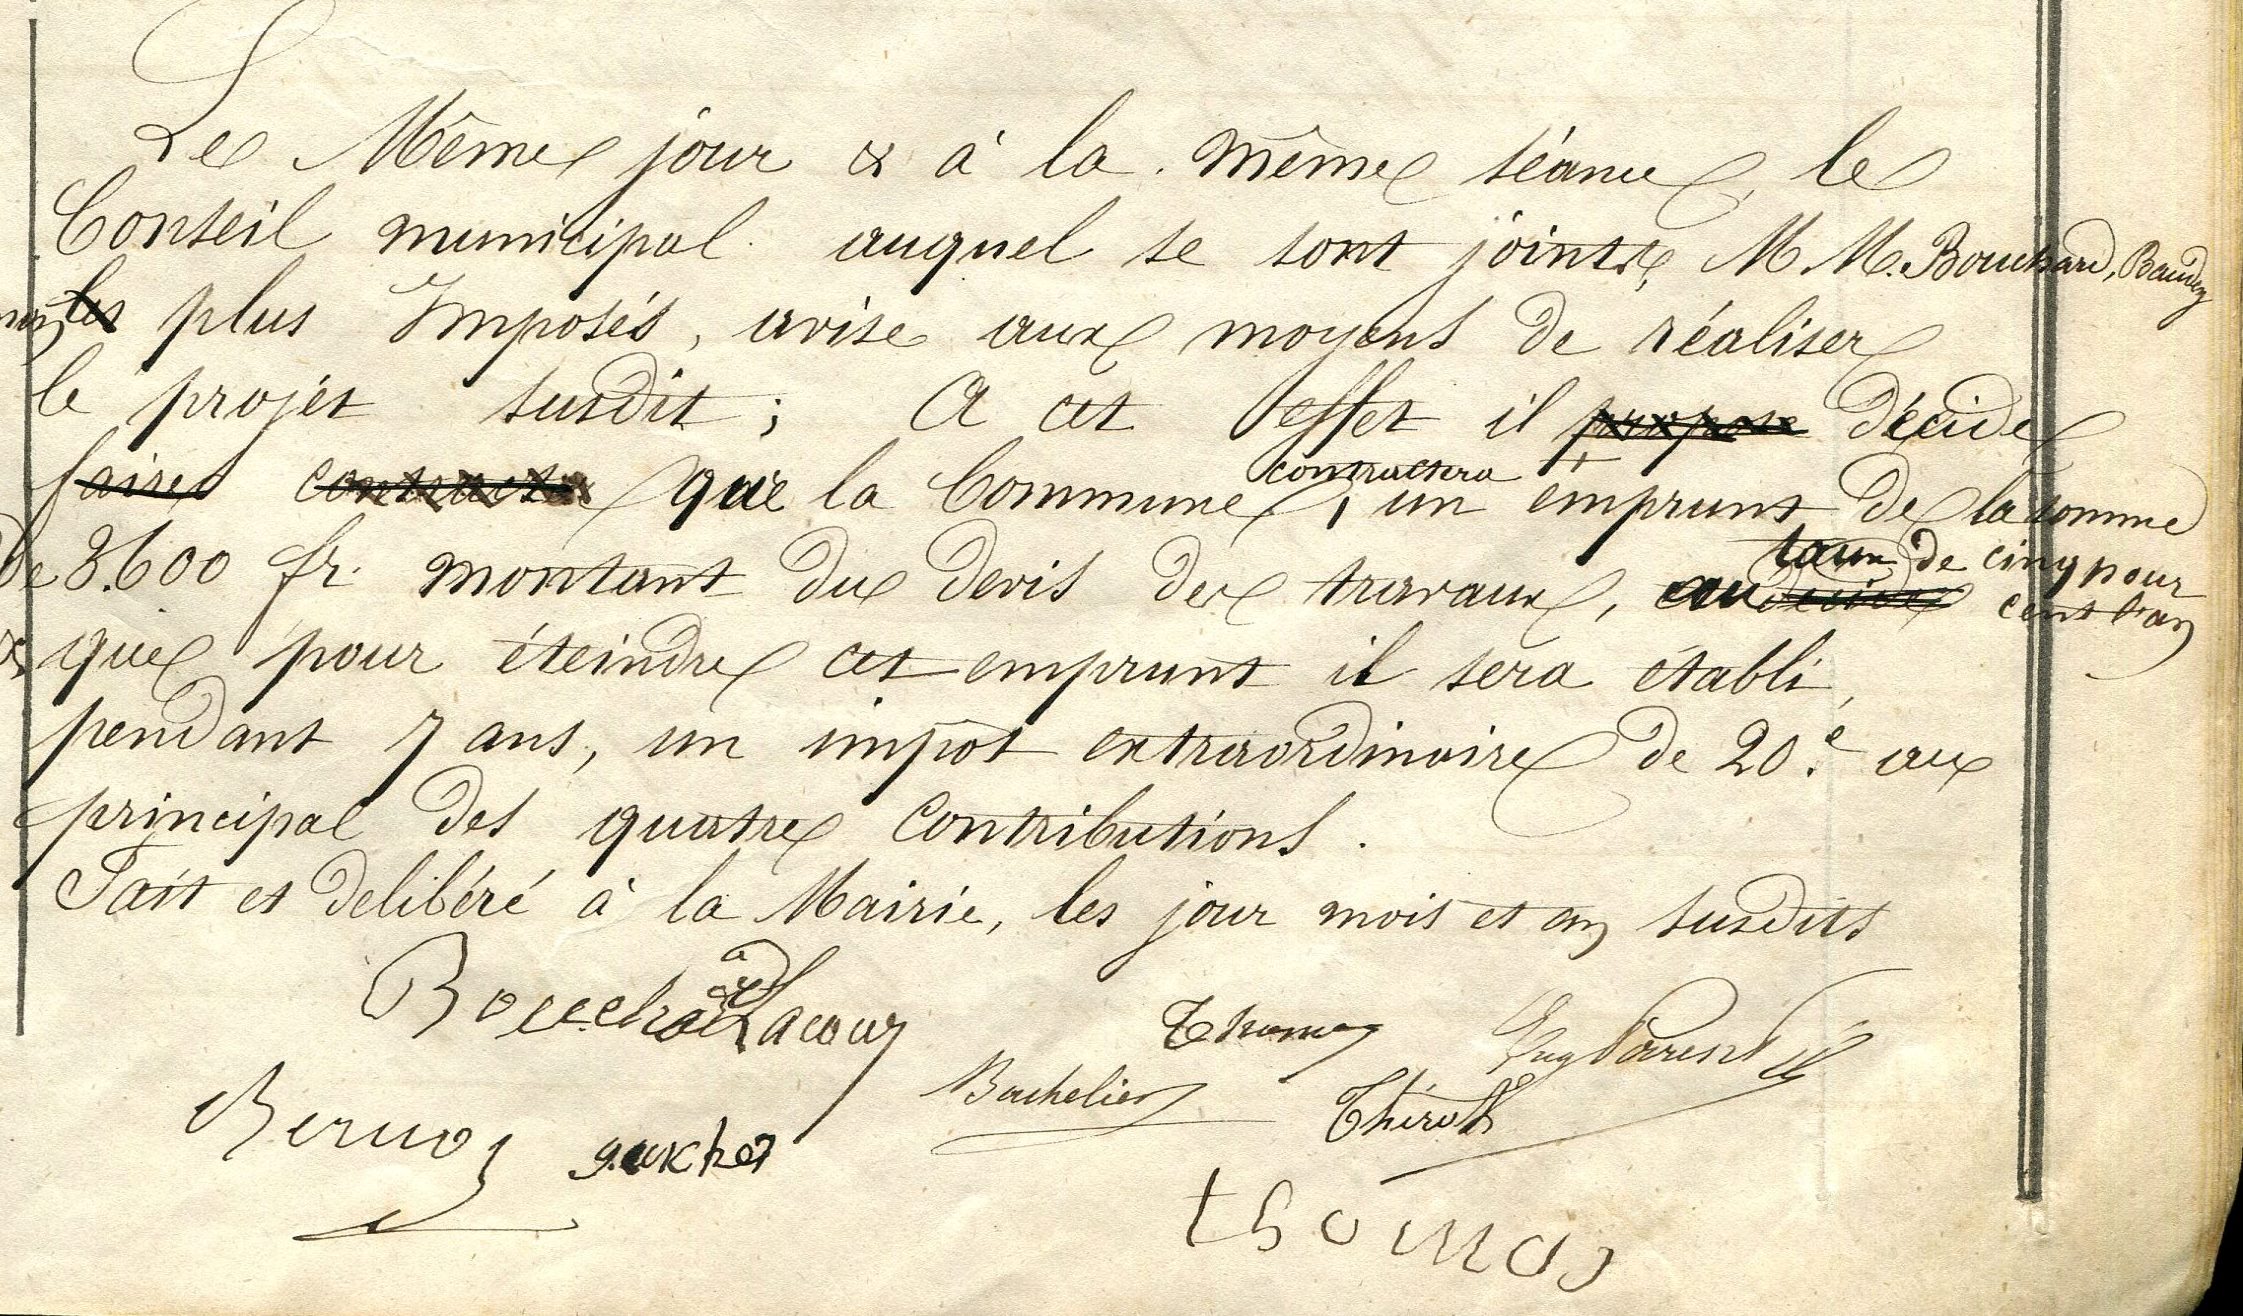 Le Même jour & à la même séance, le
Conseil municipal auquel se sont joints, M. M. Bouchard, Baudry
les plus Imposés, avise aux moyens de réaliser
le projet susdit ; A cet effet il propose décide
faire contracter que la Commune, contractera un emprunt de la somme
de 3.600 fr. montant du devis des travaux, au taux de cinq pour
cent l'an
& que pour éteindre cet emprunt il sera établi,
pendant 7 ans, un impôt extraordinaire de 20.e au
principal des quatre Contributions.
Fait et delibéré à la Mairie, les jour mois et an susdits
Bouchard Lacour Thomas Guy Parent
Bachelier Thirot
Bernos
thomas